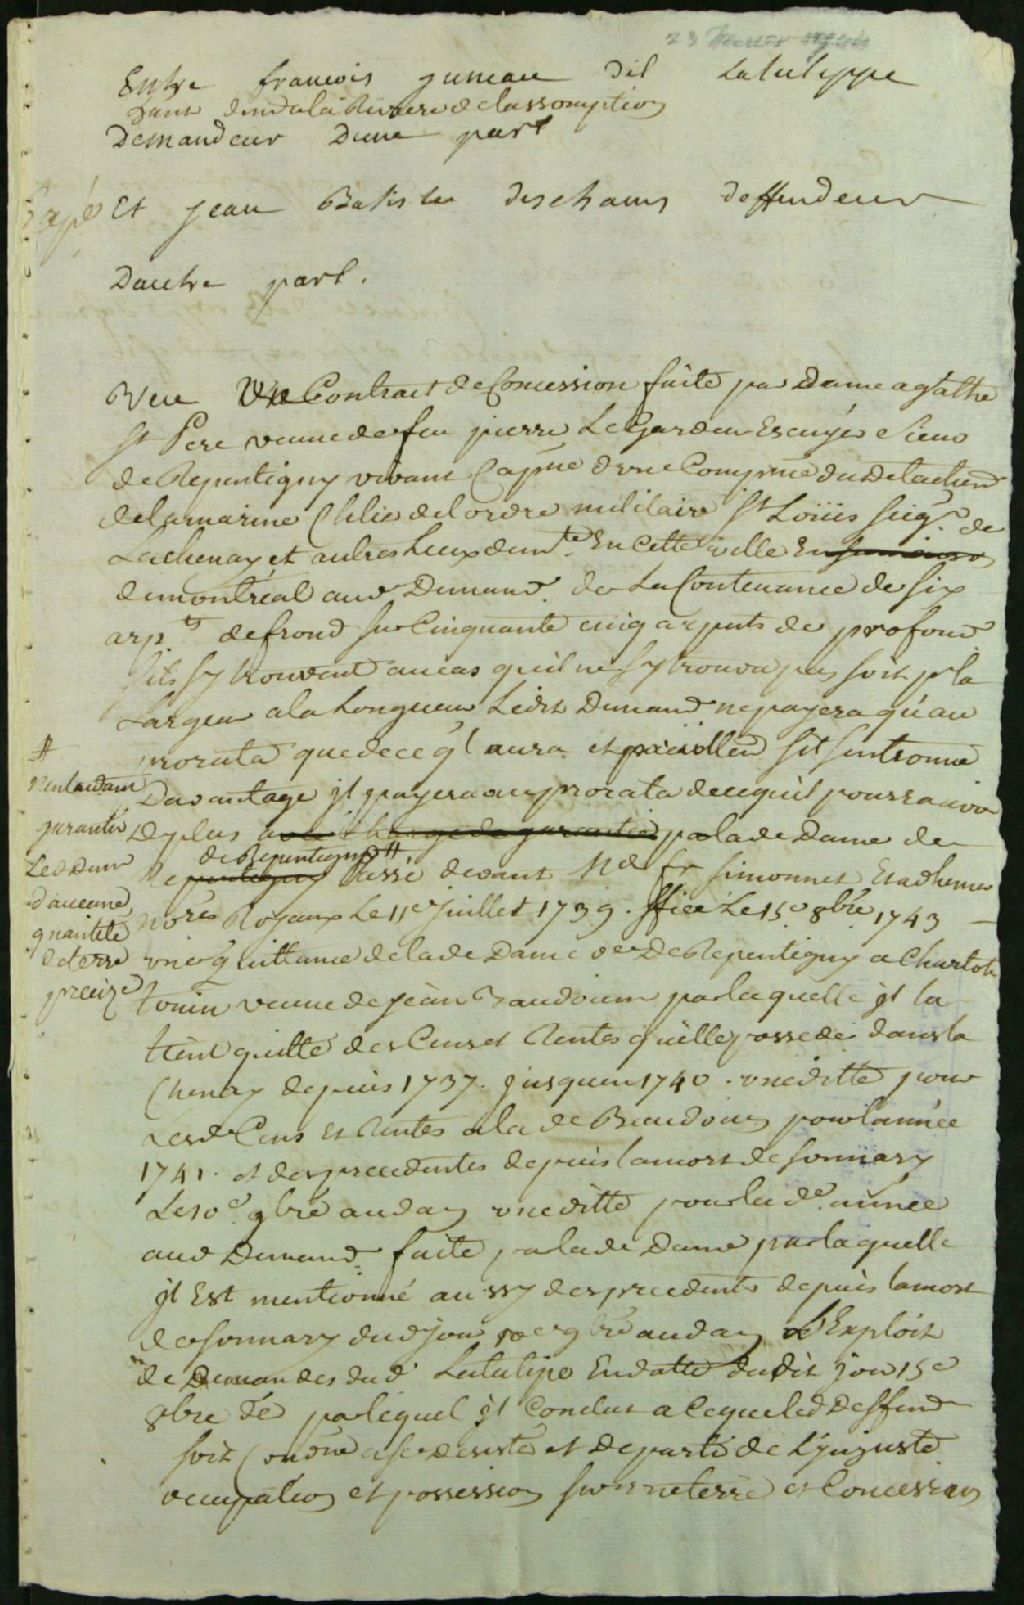 23
Entre francois juneau dit Latulippe
demandeur Dune part
Et jean Batiste deschams deffendeur
Dautre part.
Veu Contract de Concession faite par Dame agathe
St Pere veuve de feu pierre LeGardeur Escuyer Sieur
de Repentigny vivant Capne d'une Compnie du Detachemt
de la marine Chlier de lordre militaire St Loüis seigr de
Lachenay et autres lieux demte En cette ville
de montréal aud Demandr de La Contenance de six
arpts de frond sur Cinquante cinq arpents de profond
sils sy trouvent au cas quil ne sy trouva pas soit pr la
Largeur a la Longueur Ledit Demandr ne payera qu'au
prorata que de ce ql aura et sil sen trouve
#
Davantage jl payera au prorata de ce quil pourra avoir
garantir
De plus par lade Dame de
Led Dem
de Repentigny #
Repentigny Passé devant Me fr simonnet Et adhemar
d'aucune
nores Royaux Le 11e Juillet 1739. Le 15e 8bre 1743
quantité
de terre
une quittance de lade Dame ve De Repentigny a Charlotte
precize
veuve de jean Baudouin par laquelle jl la
tient quitte des Cens et Rentes quelle possede dans la
Chenay depuis 1737. jusquen 1740. une ditte pour
Lesd Cens et Rentes a lade Baudouin pour lannée
1741. et des precedentes depuis la mort de son mary
Le 10e 9bre aud an une ditte pour lade année
aud Demandr faite par lade Dame par laquelle
jl Est mentionné aussy des precedentes depuis la mort
de son mary dud jour 10e 9bre aud an L'Exploit
de Demandes dud Latulipe En datte dudit jour 15e
8bre de par lequel jl Conclut a ce que led deffendr
soit Condne a se desister et departir de L'injuste
occupation et possession sur une terre et Concession